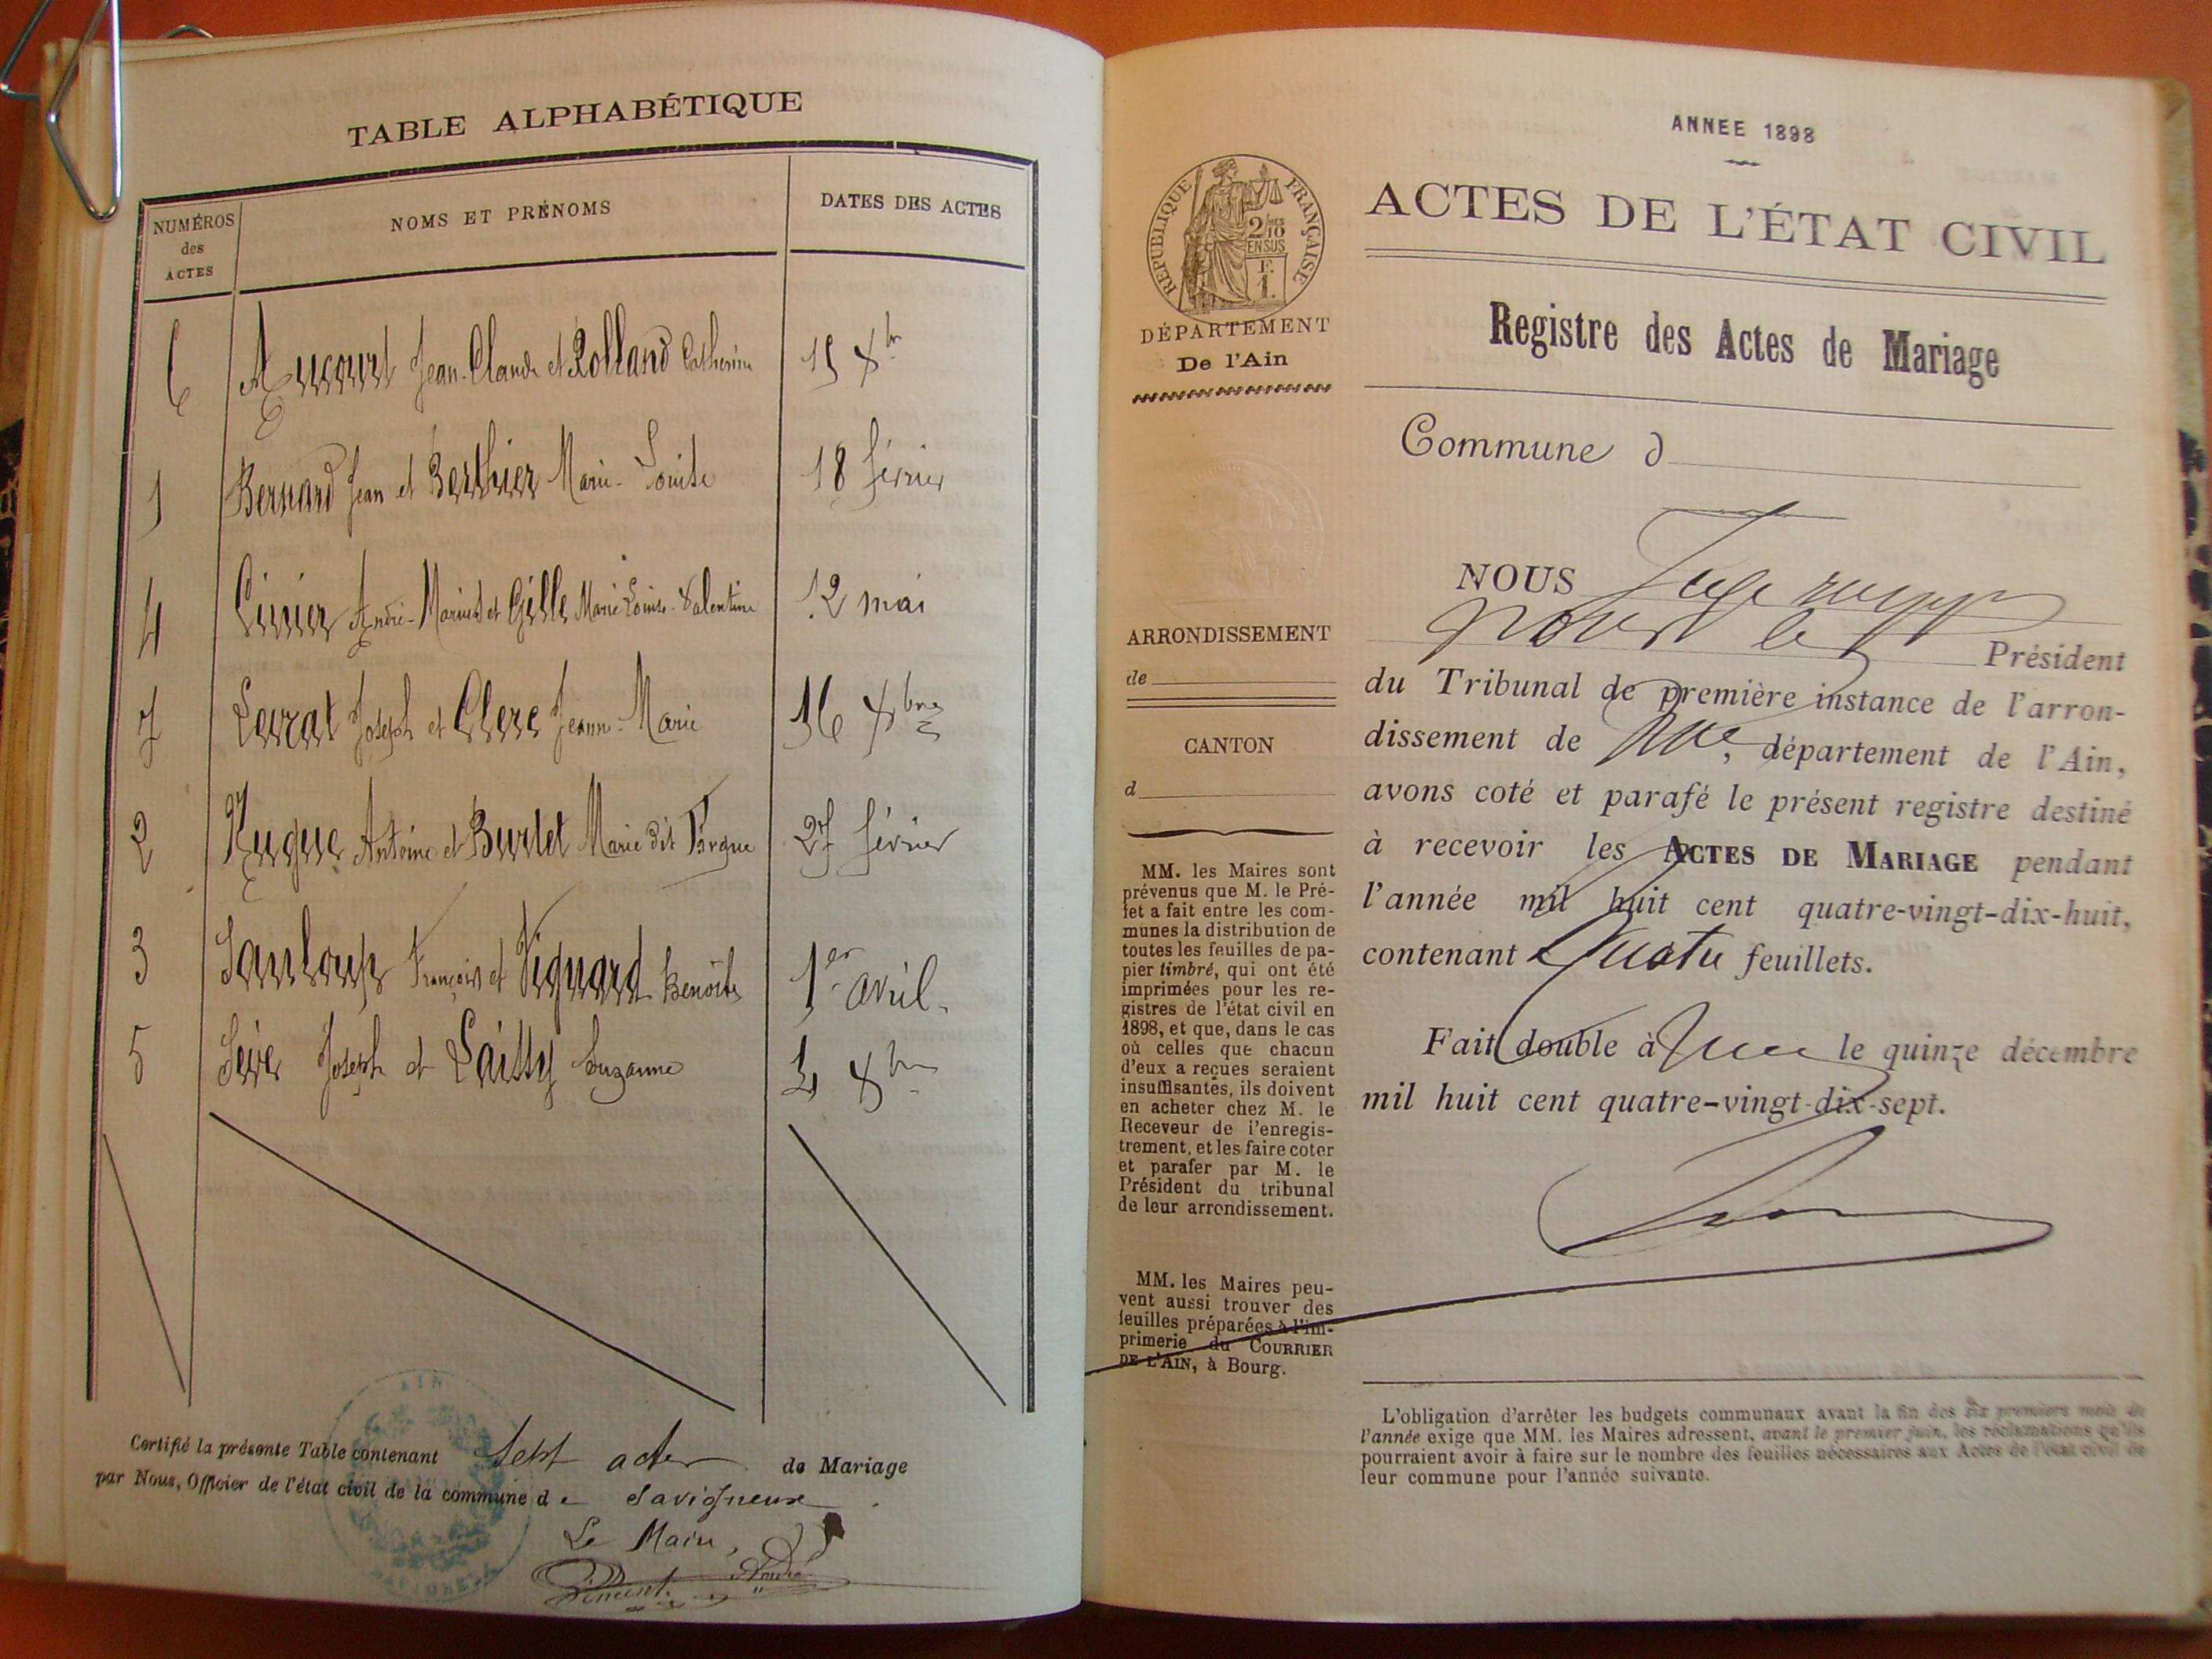 TABLE ALPHABÉTIQUE
NUMÉROS
des
ACTES
NOMS ET PRÉNOMS
DATES DES ACTES
6 Aucourt Jean-Claude et Rolland Catherine 15 Xbr
1 Bernard Jean et Berthier Marie-Louise 18 février
4 André-Marius et Gille Marie Louise-Valentine 12 mai
7 Joseph et Clerc Jeanne-Marie 16 Xbre
2 Antoine et Burtet Marie dit 27 février
3 François et Vignard Benoîte 1er avril.
5 Sève Joseph et Laissy Suzanne Xbre
Certifié la présente Table contenant Sept actes de Mariage
par Nous, Officier de l'état civil de la commune de Savigneux.
Le Maire,
Vincent André
ANNEE 1898
ACTES DE L'ÉTAT CIVIL
Registre des Actes de Mariage
Commune d
REPUBLIQUE FRANÇAISE
2/10
EN SUS
F.
1.
DÉPARTEMENT
De l'Ain
ARRONDISSEMENT
de
CANTON
d
MM. les Maires sont
prévenus que M. le Pré-
fet a fait entre les com-
munes la distribution de
toutes les feuilles de pa-
pier timbré, qui ont été
imprimées pour les re-
gistres de l'état civil en
1898, et que, dans le cas
où celles que chacun
d'eux a reçues seraient
insuffisantes, ils doivent
en acheter chez M. le
Receveur de l'enregis-
trement, et les faire coter
et parafer par M. le
Président du tribunal
de leur arrondissement.
MM. les Maires peu-
vent aussi trouver des
feuilles préparées à l'im-
primerie du COURRIER
DE L'AIN, à Bourg.
NOUS Juge suppt
pour le Président
du Tribunal de première instance de l'arron-
dissement de , département de l'Ain,
avons coté et parafé le présent registre destiné
à recevoir les ACTES DE MARIAGE pendant
l'année mil huit cent quatre-vingt-dix-huit,
contenant Quatre feuillets.
Fait double à le quinze décembre
mil huit cent quatre-vingt-dix-sept.
L'obligation d'arrêter les budgets communaux avant la fin des six premiers mois de
l'année exige que MM. les Maires adressent, avant le premier juin, les réclamations qu'ils
pourraient avoir à faire sur le nombre des feuilles nécessaires aux Actes de l'état civil de
leur commune pour l'année suivante.